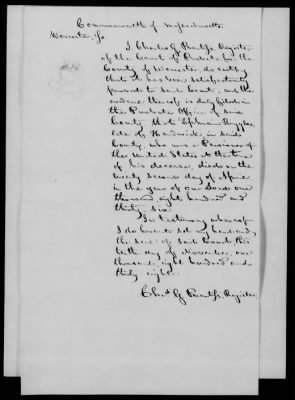 Commonwealth of Massachusetts.
Worcester, Ss.
I, Charles G. Prentiss, Register
of the Court of Probate for the
County of Worcester do certify
that it has been satisfactorily
proved to said Court, and the
evidence thereof is duly filed in
the Probate Office of said
County that Ephraim Ruggles
late of Hardwick, in said
County, who was a Pensioner of
the United States at the time
of his decease, died on the
twenty second day of April
in the year of our Lord one
thousand eight hundred and
thirty six.
In testimony whereof
I do hereunto set my hand and
the seal of said Court, this
tenth day of November, one
thousand, eight hundred and
thirty eight.
Chas. G. Prentiss, Register.